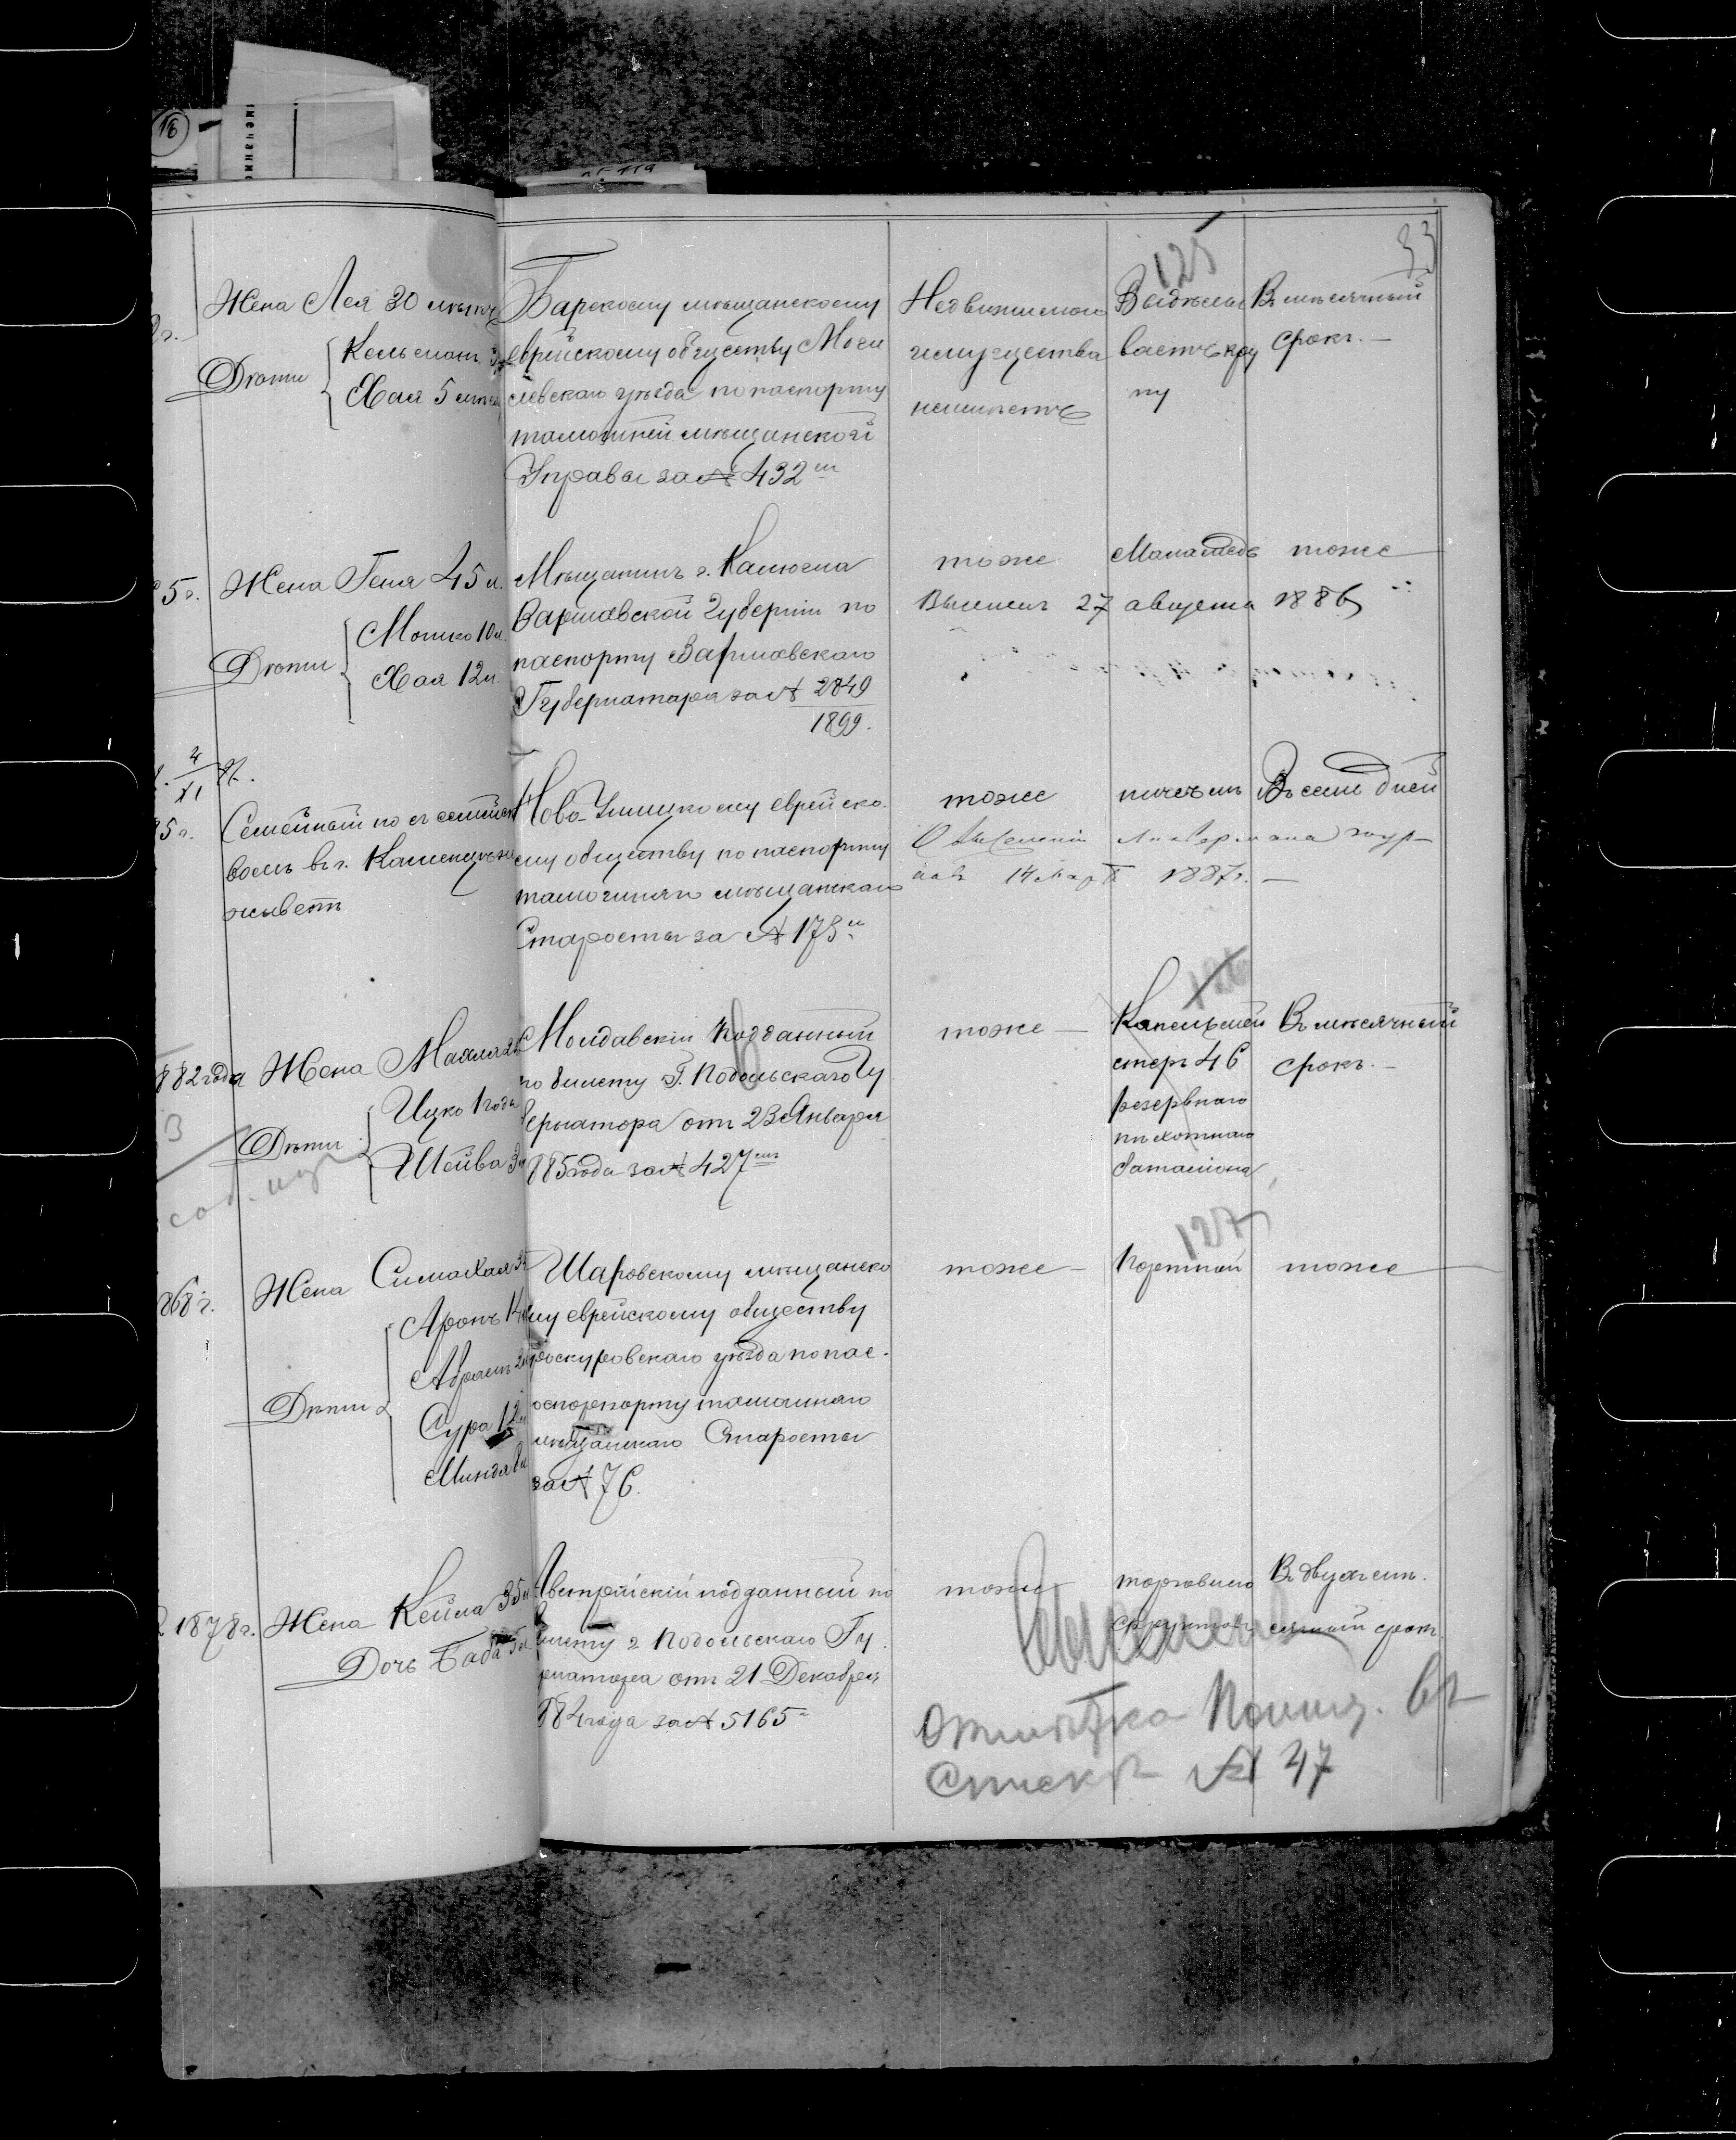 16
33
125
Жена Лея 30 лѣтъ
Дѣти
Кельман
Хая 5 лѣтъ
Барскому мѣщанскому
еврейскому обществу Моги
левскаго уѣзда по паспорту
тамошней мѣщанской
Управы за № 432
Недвижимаго
имущества
неимѣетъ
Выдѣлы
ваетъ кру
пу
Въ мѣсячный
срокъ. —
5 г. Жена Геня 45 л.
Дѣти
Мошко 10 л.
Хая 12 л.
Мѣщанинъ г.
Варшавской Губерніи по
паспорту Варшавскаго
Губернатора за № 2849
1899.
тоже
тоже
27 августа 1886
4
XI
5 г. Семейный но съ семейст
вомъ въ г.
живетъ
Ново-Ушицкому еврейско
му обществу по паспорту
тамошняго мѣщанскаго
Старосты за № 173
тоже
ничѣмъ
Въ семь дней
14 Март 1887 г. —
126
882 года Жена
Дѣти
Ицко 1 года
Шейва 3
3
Молдавскій подданный
по билету Г. Подольскаго Гу
бернатора отъ 23 Января
885 года за № 427
тоже —
Капельмей
стеръ 46
резервнаго
пѣхотнаго
баталіона
Въ мѣсячный
срокъ. —
127
868 г. Жена Сима Хая
Дѣти
Аронъ 14
Абрам
Сура 12
Миндля
Шаровскому мѣщанско
му еврейскому обществу
роскуровскаго уѣзда по пас
тамошняго
мѣщанскаго Старосты
за № 76.
тоже —
Портной
тоже
1878 г. Жена Кейла 35 л
Дочь Баба
Австрійскій подданный по
билету г. Подольскаго Гу
рнатора отъ 21 Декабря
884 года за № 5165
тоже
торговлею
фруктам
Въ двухмѣ
сячный срокъ
Отмѣтка Полиц. въ
Спискѣ № 47